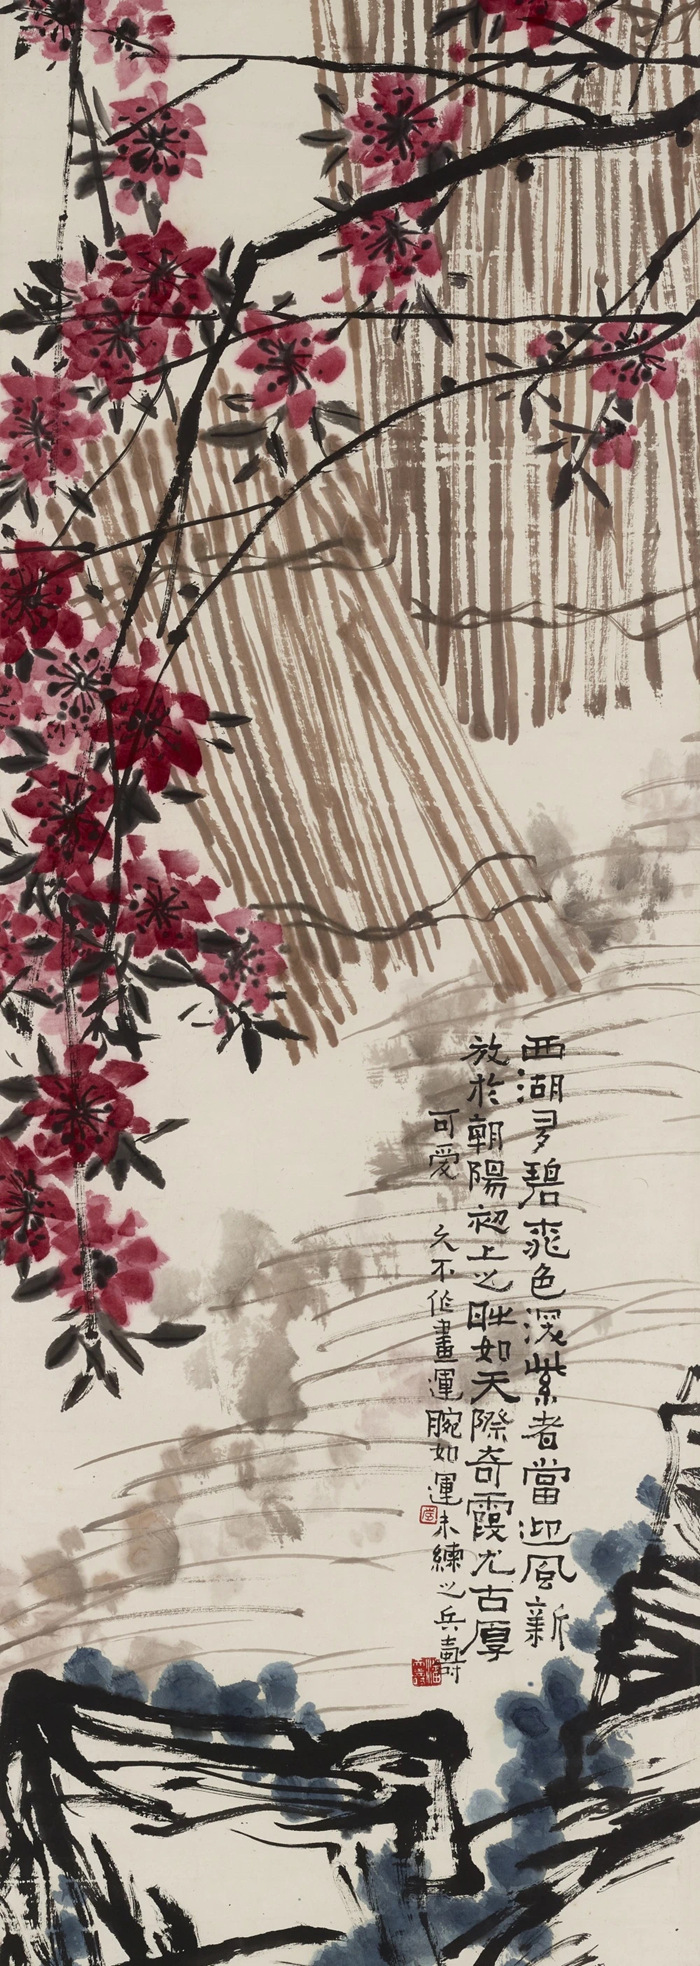 西湖多碧桃色深紫者當迎風新
放於朝陽初上之時如天際奇霞尤古厚
可愛 久不作畫運腕如運未練之兵壽